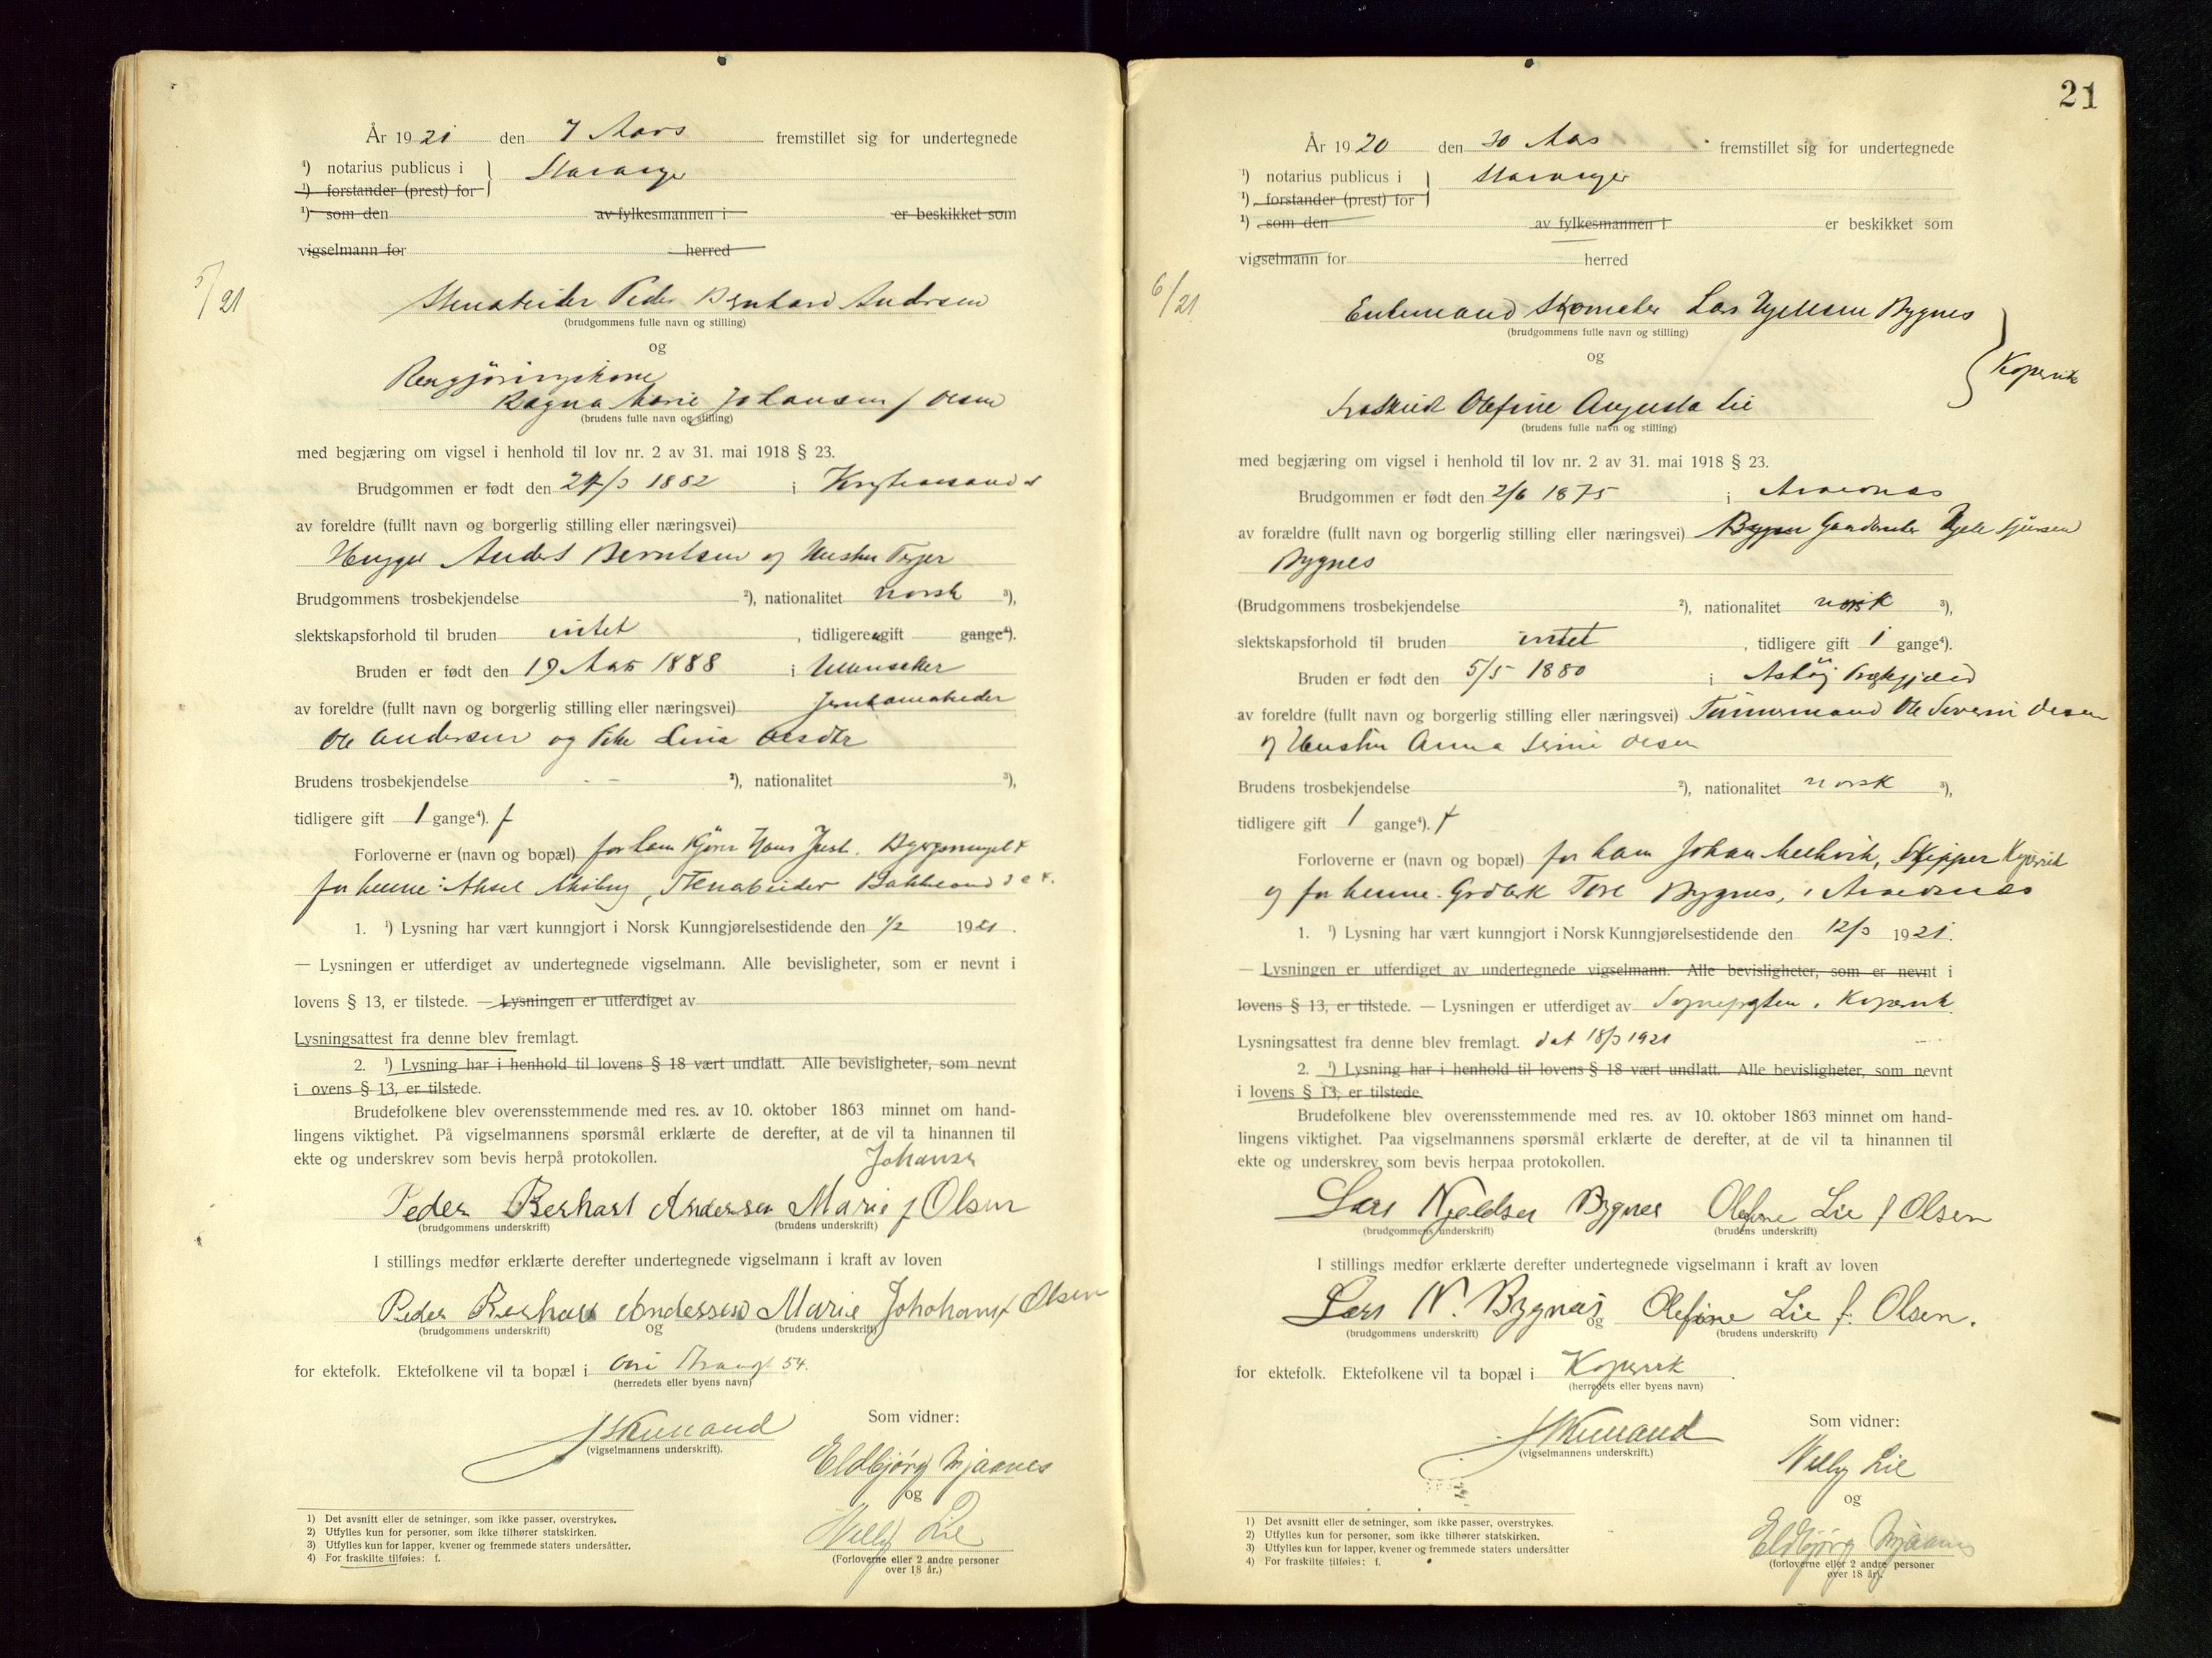 År 1921 den 7 Mars fremstillet sig for undertegnede
¹) notarius publicus i } Stavanger
¹) forstander (prest) for
¹) som den av fylkesmannen i er beskikket som
vigselmann for herred
5/21
Stenarbeider Peder Bernhard Andersen
(brudgommens fulle navn og stilling)
og
Rengjøringskone
Ragna Marie Johansen f Olsen
(brudens fulle navn og stilling)
med begjæring om vigsel i henhold til lov nr. 2 av 31. mai 1918 § 23.
Brudgommen er født den /3 1882 i Kristiansand s
av foreldre (fullt navn og borgerlig stilling eller næringsvei)
Anders Berntsen og Hustru
Brudgommens trosbekjendelse ²), nationalitet norsk ³),
slektskapsforhold til bruden intet , tidligere ugift gange⁴).
Bruden er født den 19 Mars 1888 i Ullensaker
av foreldre (fullt navn og borgerlig stilling eller næringsvei) Jernbanearbeider
Ole Andersen og Lina Olsdtr
Brudens trosbekjendelse - - ²), nationalitet ³),
tidligere gift 1 gange⁴). f
Forloverne er (navn og bopæl) for ham Kjører Hans
for henne: Aksel , Stenarbeider Bakkeland
1. ¹) Lysning har vært kunngjort i Norsk Kunngjørelsestidende den 1/2 1921.
— Lysningen er utferdiget av undertegnede vigselmann. Alle bevisligheter, som er nevnt i
lovens § 13, er tilstede. — Lysningen er utferdiget av
Lysningsattest fra denne blev fremlagt.
2. ¹) Lysning har i henhold til lovens § 18 vært undlatt. Alle bevisligheter, som nevnt
i ovens § 13, er tilstede.
Brudefolkene blev overensstemmende med res. av 10. oktober 1863 minnet om hand-
lingens viktighet. På vigselmannens spørsmål erklærte de derefter, at de vil ta hinannen til
ekte og underskrev som bevis herpå protokollen.
Johansen
Peder Berhart Andersen Marie f Olsen
(brudgommens underskrift) (brudens underskrift)
I stillings medfør erklærte derefter undertegnede vigselmann i kraft av loven
Peder Berhart Andersen Marie Johohansf Olsen
(brudgommens underskrift) og (brudens underskrift)
for ektefolk. Ektefolkene vil ta bopæl i 54.
(herredets eller byens navn)
(vigselmannens underskrift).
Som vidner:
Eldbjørg Mjaanes
og
Nelly Lie
(Forloverne eller 2 andre personer
over 18 år.)
1) Det avsnitt eller de setninger, som ikke passer, overstrykes.
2) Utfylles kun for personer, som ikke tilhører statskirken.
3) Utfylles kun for lapper, kvener og fremmede staters undersåtter.
4) For fraskilte tilføies: f.
21
År 1920 den 30 Mars fremstillet sig for undertegnede
¹) notarius publicus i } Stavanger
¹) forstander (prest) for
¹) som den av fylkesmannen i er beskikket som
vigselmann for herred
6/21
Enkemand Skomaker Lars Kjeldsen Bygnes
(brudgommens fulle navn og stilling)
og
} Kopervik
Fraskildt Olefine Augusta Lie
(brudens fulle navn og stilling)
med begjæring om vigsel i henhold til lov nr. 2 av 31. mai 1918 § 23.
Brudgommen er født den 2/6 1875 i Avaldsnes
av forældre (fullt navn og borgerlig stilling eller næringsvei) Gaardbruker Kjell
Bygnes
(Brudgommens trosbekjendelse ²), nationalitet norsk ³),
slektskapsforhold til bruden intet , tidligere gift 1 gange⁴).
Bruden er født den 5/5 1880 i Askøy Prestegjæld
av foreldre (fullt navn og borgerlig stilling eller næringsvei) Tømmermand Ole Severin Olsen
og Hustru Anna Olsen
Brudens trosbekjendelse ²), nationalitet norsk ³),
tidligere gift 1 gange⁴). f
Forloverne er (navn og bopæl) for ham Johan , Skipper Kopervik
og for henne. Grdbrk Tore Bygnes, i Avaldsnes
1. ¹) Lysning har vært kunngjort i Norsk Kunngjørelsestidende den 12/3 1921.
— Lysningen er utferdiget av undertegnede vigselmann. Alle bevisligheter, som er nevnt i
lovens § 13, er tilstede. — Lysningen er utferdiget av Sogneprsten i Kopervik
Lysningsattest fra denne blev fremlagt. dat 18/3 1921
2. ¹) Lysning har i henhold til lovens § 18 vært undlatt. Alle bevisligheter, som nevnt
i lovens § 13, er tilstede
Brudefolkene blev overensstemmende med res. av 10. oktober 1863 minnet om hand-
lingens viktighet. Paa vigselmannens spørsmål erklærte de derefter, at de vil ta hinannen til
ekte og underskrev som bevis herpaa protokollen.
Lars Njeldsen Bygnes Olefine Lie f Olsen
(brudgommens underskrift) (brudens underskrift)
I stillings medfør erklærte derefter undertegnede vigselmann i kraft av loven
Lars N. Bygnes og Olefine Lie f. Olsen.
(brudgommens underskrift) (brudens underskrift)
for ektefolk. Ektefolkene vil ta bopæl i Kopervik.
(herredets eller byens navn)
(vigselmannens underskrift.)
Som vidner:
Nelly Lie
og
Eldbjørg Mjaanes
(forloverne eller 2 andre personer
over 18 år).
1) Det avsnitt eller de setninger, som ikke passer, overstrykes.
2) Utfylles kun for personer, som ikke tilhører statskirken.
3) Utfylles kun for lapper, kvener og fremmede staters undersåtter
4) For fraskilte tilføies: f.